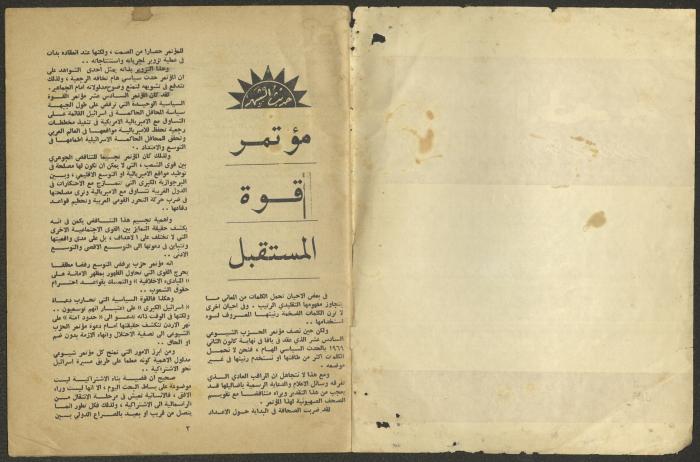 حديث الشهر
مؤتمر
قوة
المستقبل
في بعض الاحيان تحمل الكلمات من المعاني ما
يتجاوز مفهومها التقليدي الرتيب . وفي احيان اخرى
لا ترن الكلمات الضخمة رنينها المعروف لسوء
استخدامها ..
ولكن حين نصف مؤتمر الحزب الشيوعي
السادس عشر الذي عقد في يافا في نهاية كانون الثاني
١٩٦٩ بالحدث السياسي الهام ، فنحن لا نحمل
الكلمات اكثر من طاقتها او نستخدم رنينها في غير
موضعه .
ومع هذا لا نتجاهل ان المراقب العادي الذي
تغرقه وسائل الاعلام والدعاية الرسمية باضاليلها قد
يعجب من هذا التقدير ويراه متناقضا مع تقويم
الصحف الصهيونية لهذا المؤتمر .
لقد ضربت الصحافة في البداية حول الاعداد
للمؤتمر حصارا من الصمت ، ولكنها عند انعقاده بدأت
في عملية تزوير لمجرياته واستنتاجاته ..
وهذا التزوير بذاته يمثل احدى الشواهد على
ان المؤتمر حدث سياسي هام تخافه الرجعية ، ولذلك
تندفع في تشويهه لتمنع وضوح مدلولاته امام الجماهير .
لقد كان المؤتمر السادس عشر مؤتمر القوة
السياسية الوحيدة التي ترفض على طول الجبهة
سياسة المحافل الحاكمة في اسرائيل القائمة على
التساوق مع الامبريالية الامريكية في تنفيذ مخططات
رجعية تحفظ للامبريالية مواقعها في العالم العربي
وتحقق للمحافل الحاكمة الاسرائيلية اطماعها في
التوسع والامتداد .
ولذلك كان المؤتمر تجسيما للتناقض الجوهري
بين قوى الشعب ، التي لا يمكن ان تكون لها مصلحة في
توطيد مواقع الامبريالية او التوسع الاقليمي ، وبين
البرجوازية الكبرى التي تتمازج مع الاحتكارات في
الدول الغربية تتساوق مع الامبريالية وترى مصلحتها
في ضرب حركة التحرر القومي العربية وتحطيم قواعد
دفاعها ..
واهمية تجسيم هذا التناقض يكمن في انه
يكشف حقيقة التمايز بين القوى الاجتماعية الاخرى
التي لا تختلف على الاهداف ، بل على مدى واقعيتها
وتتباين في دعوتها الى التوسع الاقصى والتوسع
الادنى ..
انه مؤتمر حزب يرفض التوسع رفضا مطلقا
يحرج القوى التي تحاول الظهور بمظهر الامانة على
« المبادىء الاخلاقية » والتمسك بقواعد احترام
حقوق الشعوب ..
وهكذا فالقوة السياسية التي تحارب دعاة
« اسرائيل الكبرى » على اعتبار انهم توسعيون ..
ولكنها في الوقت ذاته تدعو الى « حدود آمنة » على
نهر الاردن تنكشف حقيقتها امام دعوة مؤتمر الحزب
الشيوعي الى تصفية الاحتلال وانهاء الازمة بدون ضم
او الحاق ..
ومن ابرز الامور التي تمنح كل مؤتمر شيوعي
مدلول الاهمية كونه معلما على طريق مسيرة اسرائيل
نحو الاشتراكية ..
صحيح ان قضية بناء الاشتراكية ليست
موضوعة على بساط البحث اليوم ، الا انها ليست وراء
الافق ، فالانسانية تعيش في مرحلة الانتقال من
الراسمالية الى الاشتراكية ، ولذلك فكل تطور انما
يتصل من قريب او بعيد بالصراع الدولي بين
٢